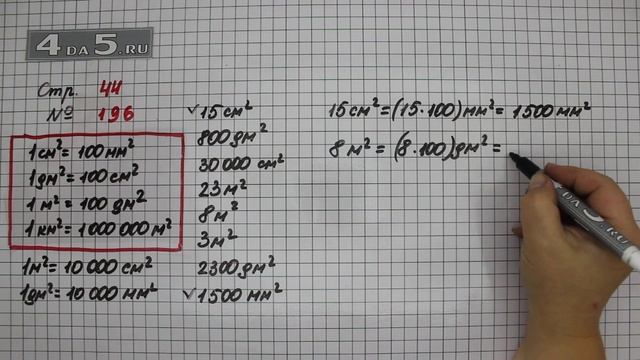 4 DA 5.RU
Стр. 44
№ 196
1 см² = 100 мм²
1 дм² = 100 см²
1 м² = 100 дм²
1 км² = 1 000 000 м²
1 м² = 10 000 см²
1 дм² = 10 000 мм²
✓ 15 см²
800 дм²
30 000 см²
23 м²
8 м²
3 м²
2300 дм²
✓ 1500 мм²
15 см² = (15 · 100) мм² = 1500 мм²
8 м² = (8 · 100) дм² =